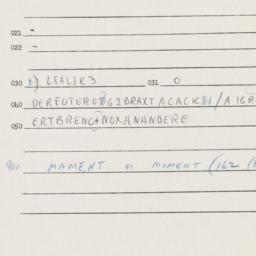 021 -
022 -
030 b) L8ALSK3 031 O
040 DERFUTERO?G2BRAXTACACK81/AIGR
050 ERTBRENG*NOXANANDERE
900 MAMENT 91 MOMENT (162 (8